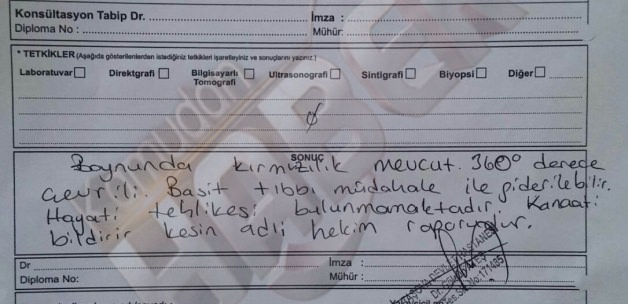 Konsültasyon Tabip Dr. İmza :
Diploma No : Mühür:
* TETKİKLER (Aşağıda gösterilenlerden istediğiniz tetkikleri işaretleyiniz ve sonuçlarını yazınız.)
Laboratuvar Direktgrafi Bilgisayarlı Tomografi Ultrasonografi Sintigrafi Biyopsi Diğer
SONUÇ
Boynunda kırmızılık mevcut. 360° derece
çevrili. Basit tıbbı müdahale ile giderilebilir.
Hayati tehlikesi bulunmamaktadır Kanaati
bildirir kesin adli hekim raporudur.
Dr İmza :
Diploma No: Mühür :